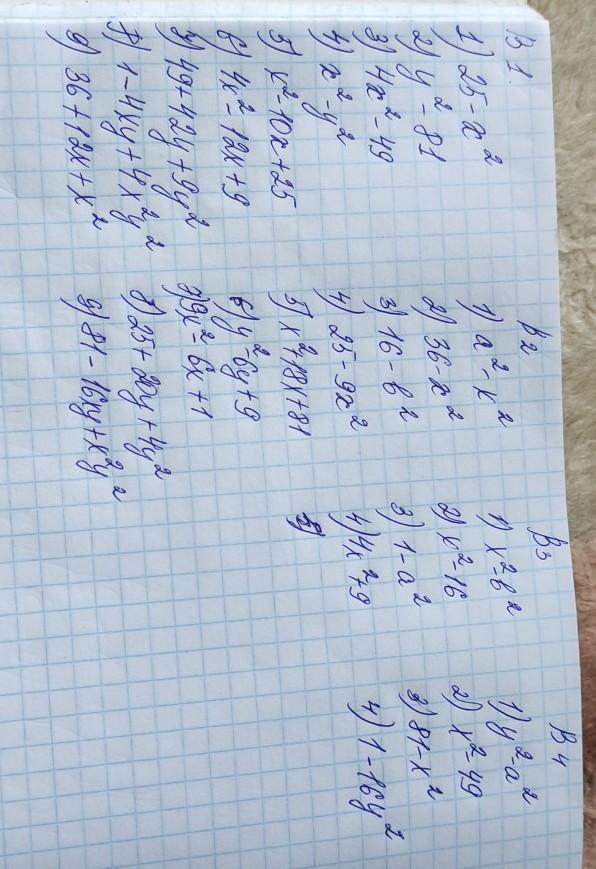 В 1.
1) 25 - x²
2) y² - 81
3) 4x² - 49
4) x² - y²
5) x² - 10x + 25
6) 4x² - 12x + 9
7) 49 + 42y + 9y²
8) 1 - 4xy + 4x²y²
9) 36 + 12x + x²
В2
1) a² - к²
2) 36 - x²
3) 16 - в²
4) 25 - 9x²
5) x² + 18x + 81
6) y² - 6y + 9
7) 9x² - 6x + 1
8) 25 + 20y + 4y²
9) 81 - 16xy + x²y²
В3
1) x² - в²
2) x² - 16
3) 1 - a²
4) 4x² + 9
В4
1) y² - a²
2) x² - 49
3) 81 - x²
4) 1 - 16y²